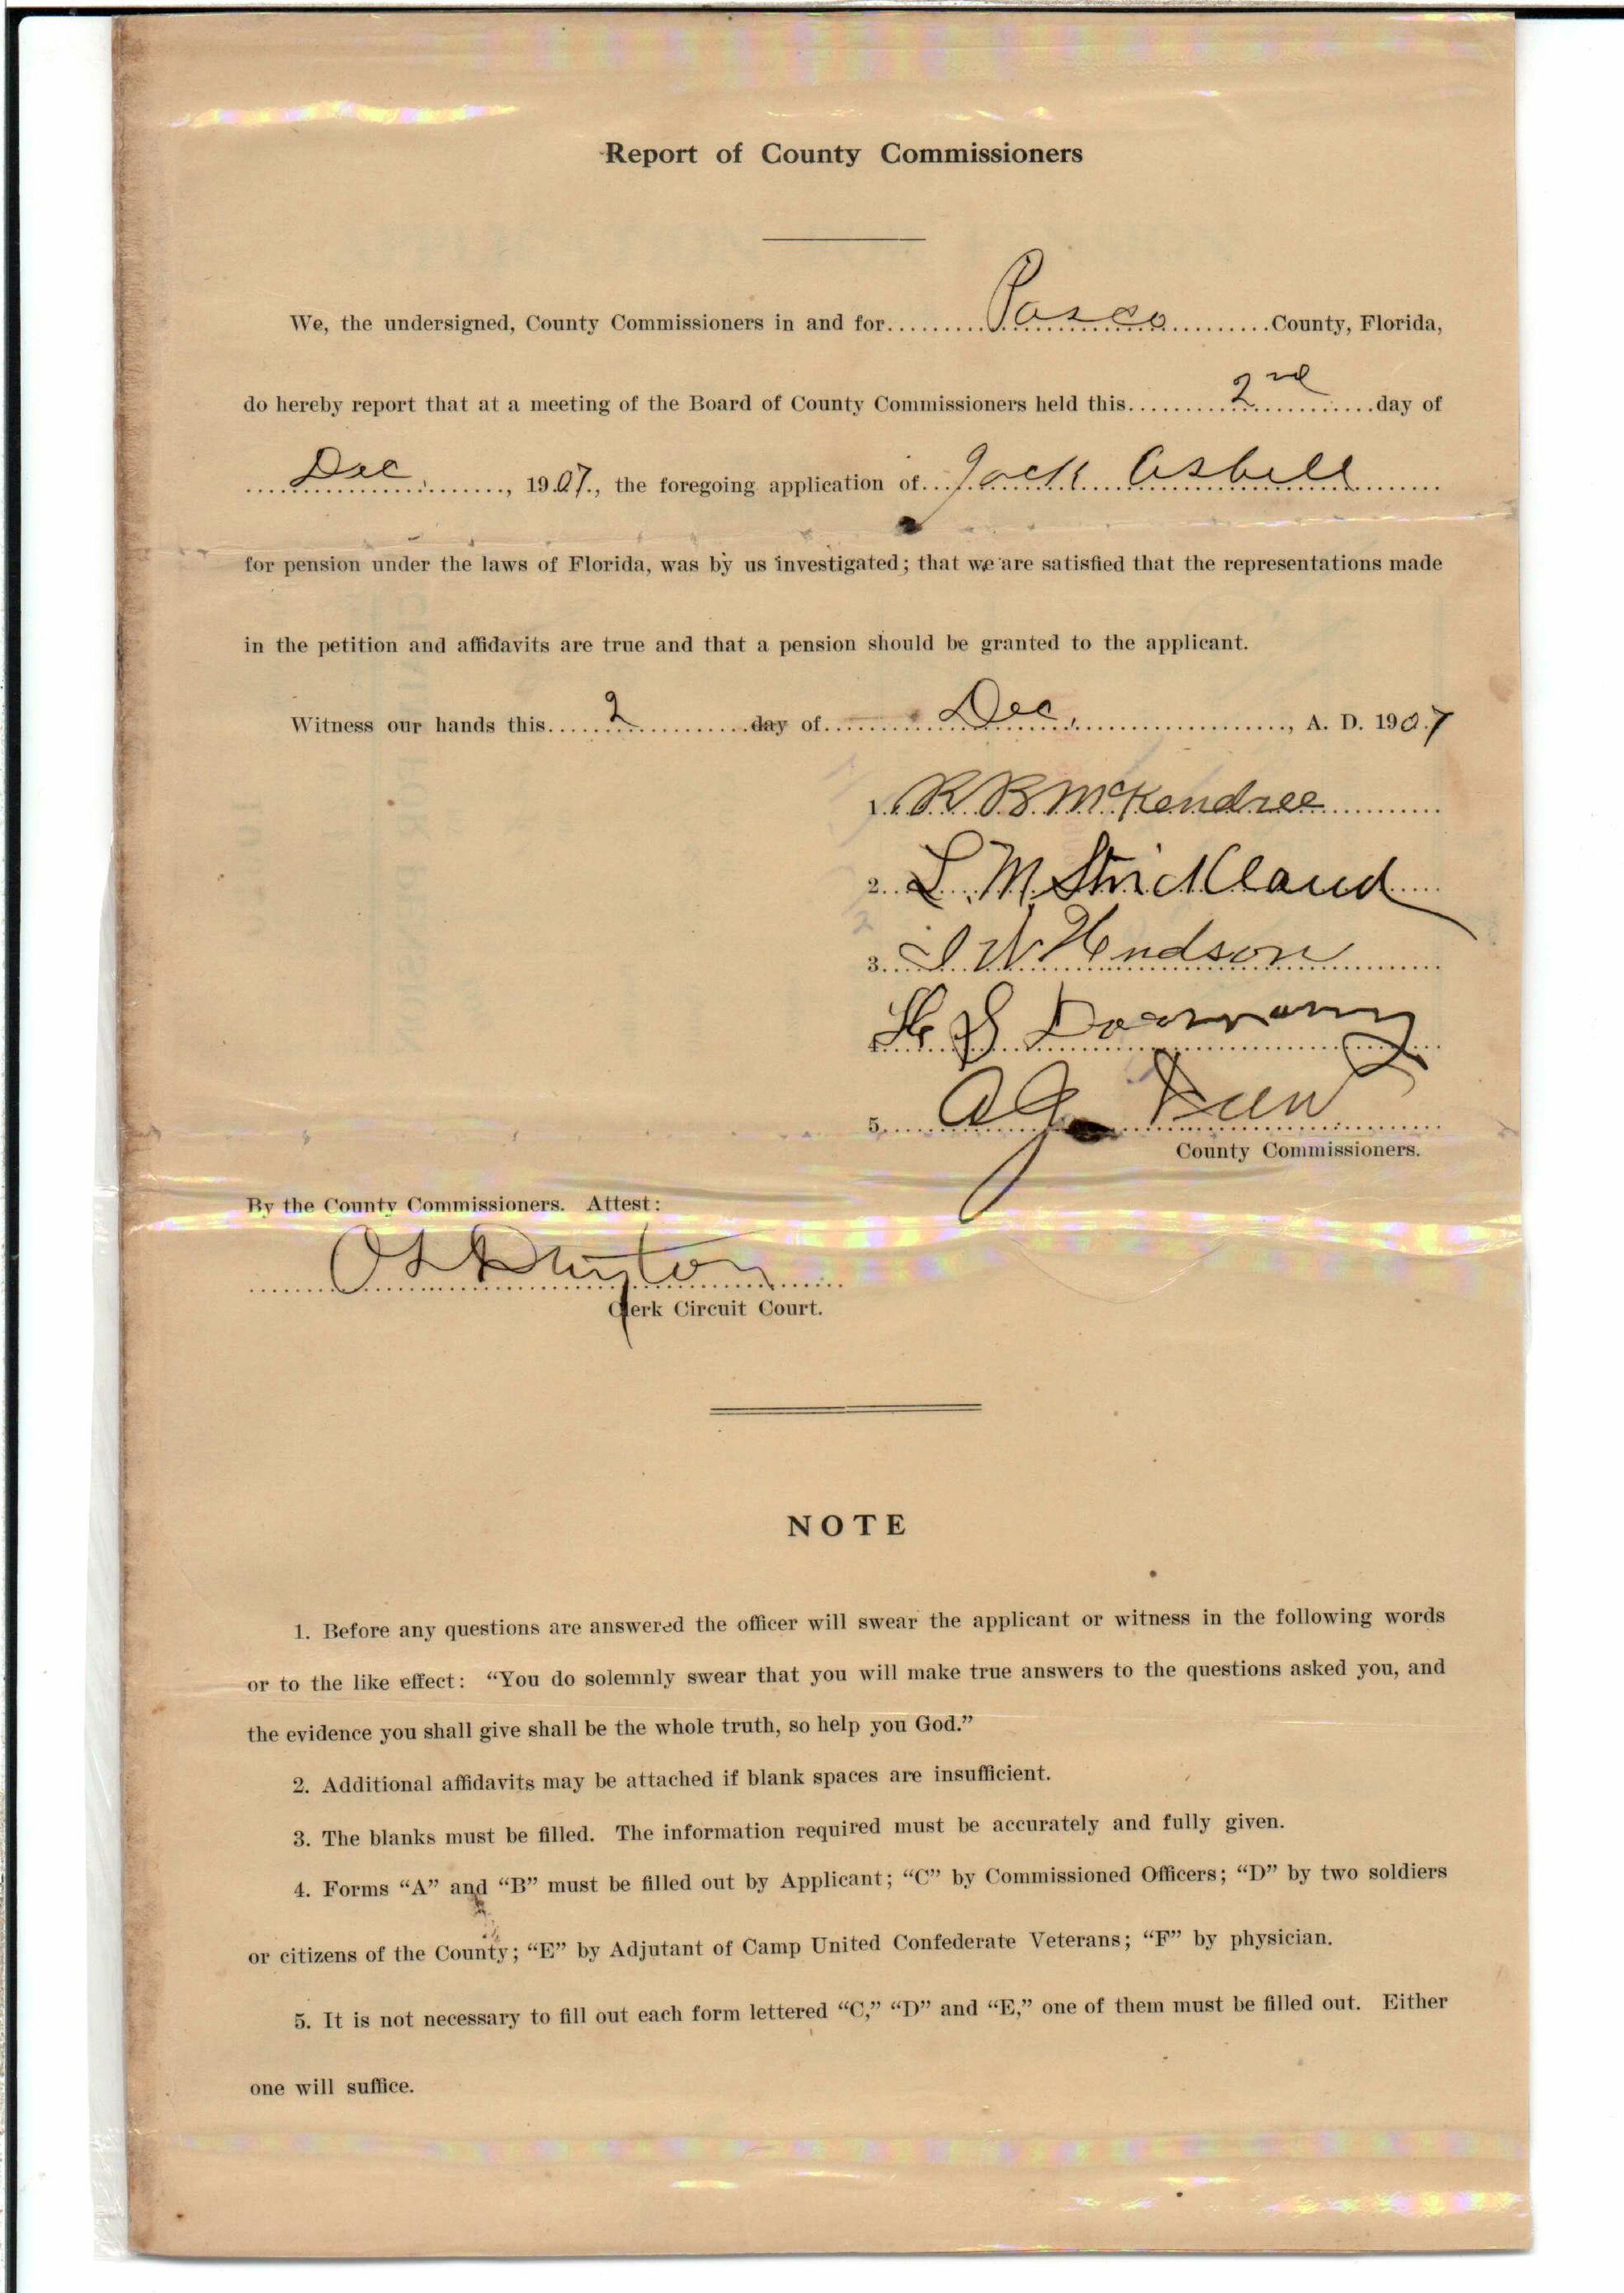 Report of County Commissioners
We, the undersigned, County Commissioners in and for Pasco County, Florida,
do hereby report that at a meeting of the Board of County Commissioners held this 2nd day of
Dec., 1907., the foregoing application of Jack Asbell
for pension under the laws of Florida, was by us investigated; that we are satisfied that the representations made
in the petition and affidavits are true and that a pension should be granted to the applicant.
Witness our hands this 2 day of Dec., A. D. 1907
1. R B McKendree
2. L. M. Strickland
3. I W Hudson
4. H S
5. A J
County Commissioners.
By the County Commissioners. Attest:
O L Dayton
Clerk Circuit Court.
NOTE
1. Before any questions are answered the officer will swear the applicant or witness in the following words
or to the like effect: “You do solemnly swear that you will make true answers to the questions asked you, and
the evidence you shall give shall be the whole truth, so help you God.”
2. Additional affidavits may be attached if blank spaces are insufficient.
3. The blanks must be filled. The information required must be accurately and fully given.
4. Forms “A” and “B” must be filled out by Applicant; “C” by Commissioned Officers; “D” by two soldiers
or citizens of the County; “E” by Adjutant of Camp United Confederate Veterans; “F” by physician.
5. It is not necessary to fill out each form lettered “C,” “D” and “E,” one of them must be filled out. Either
one will suffice.